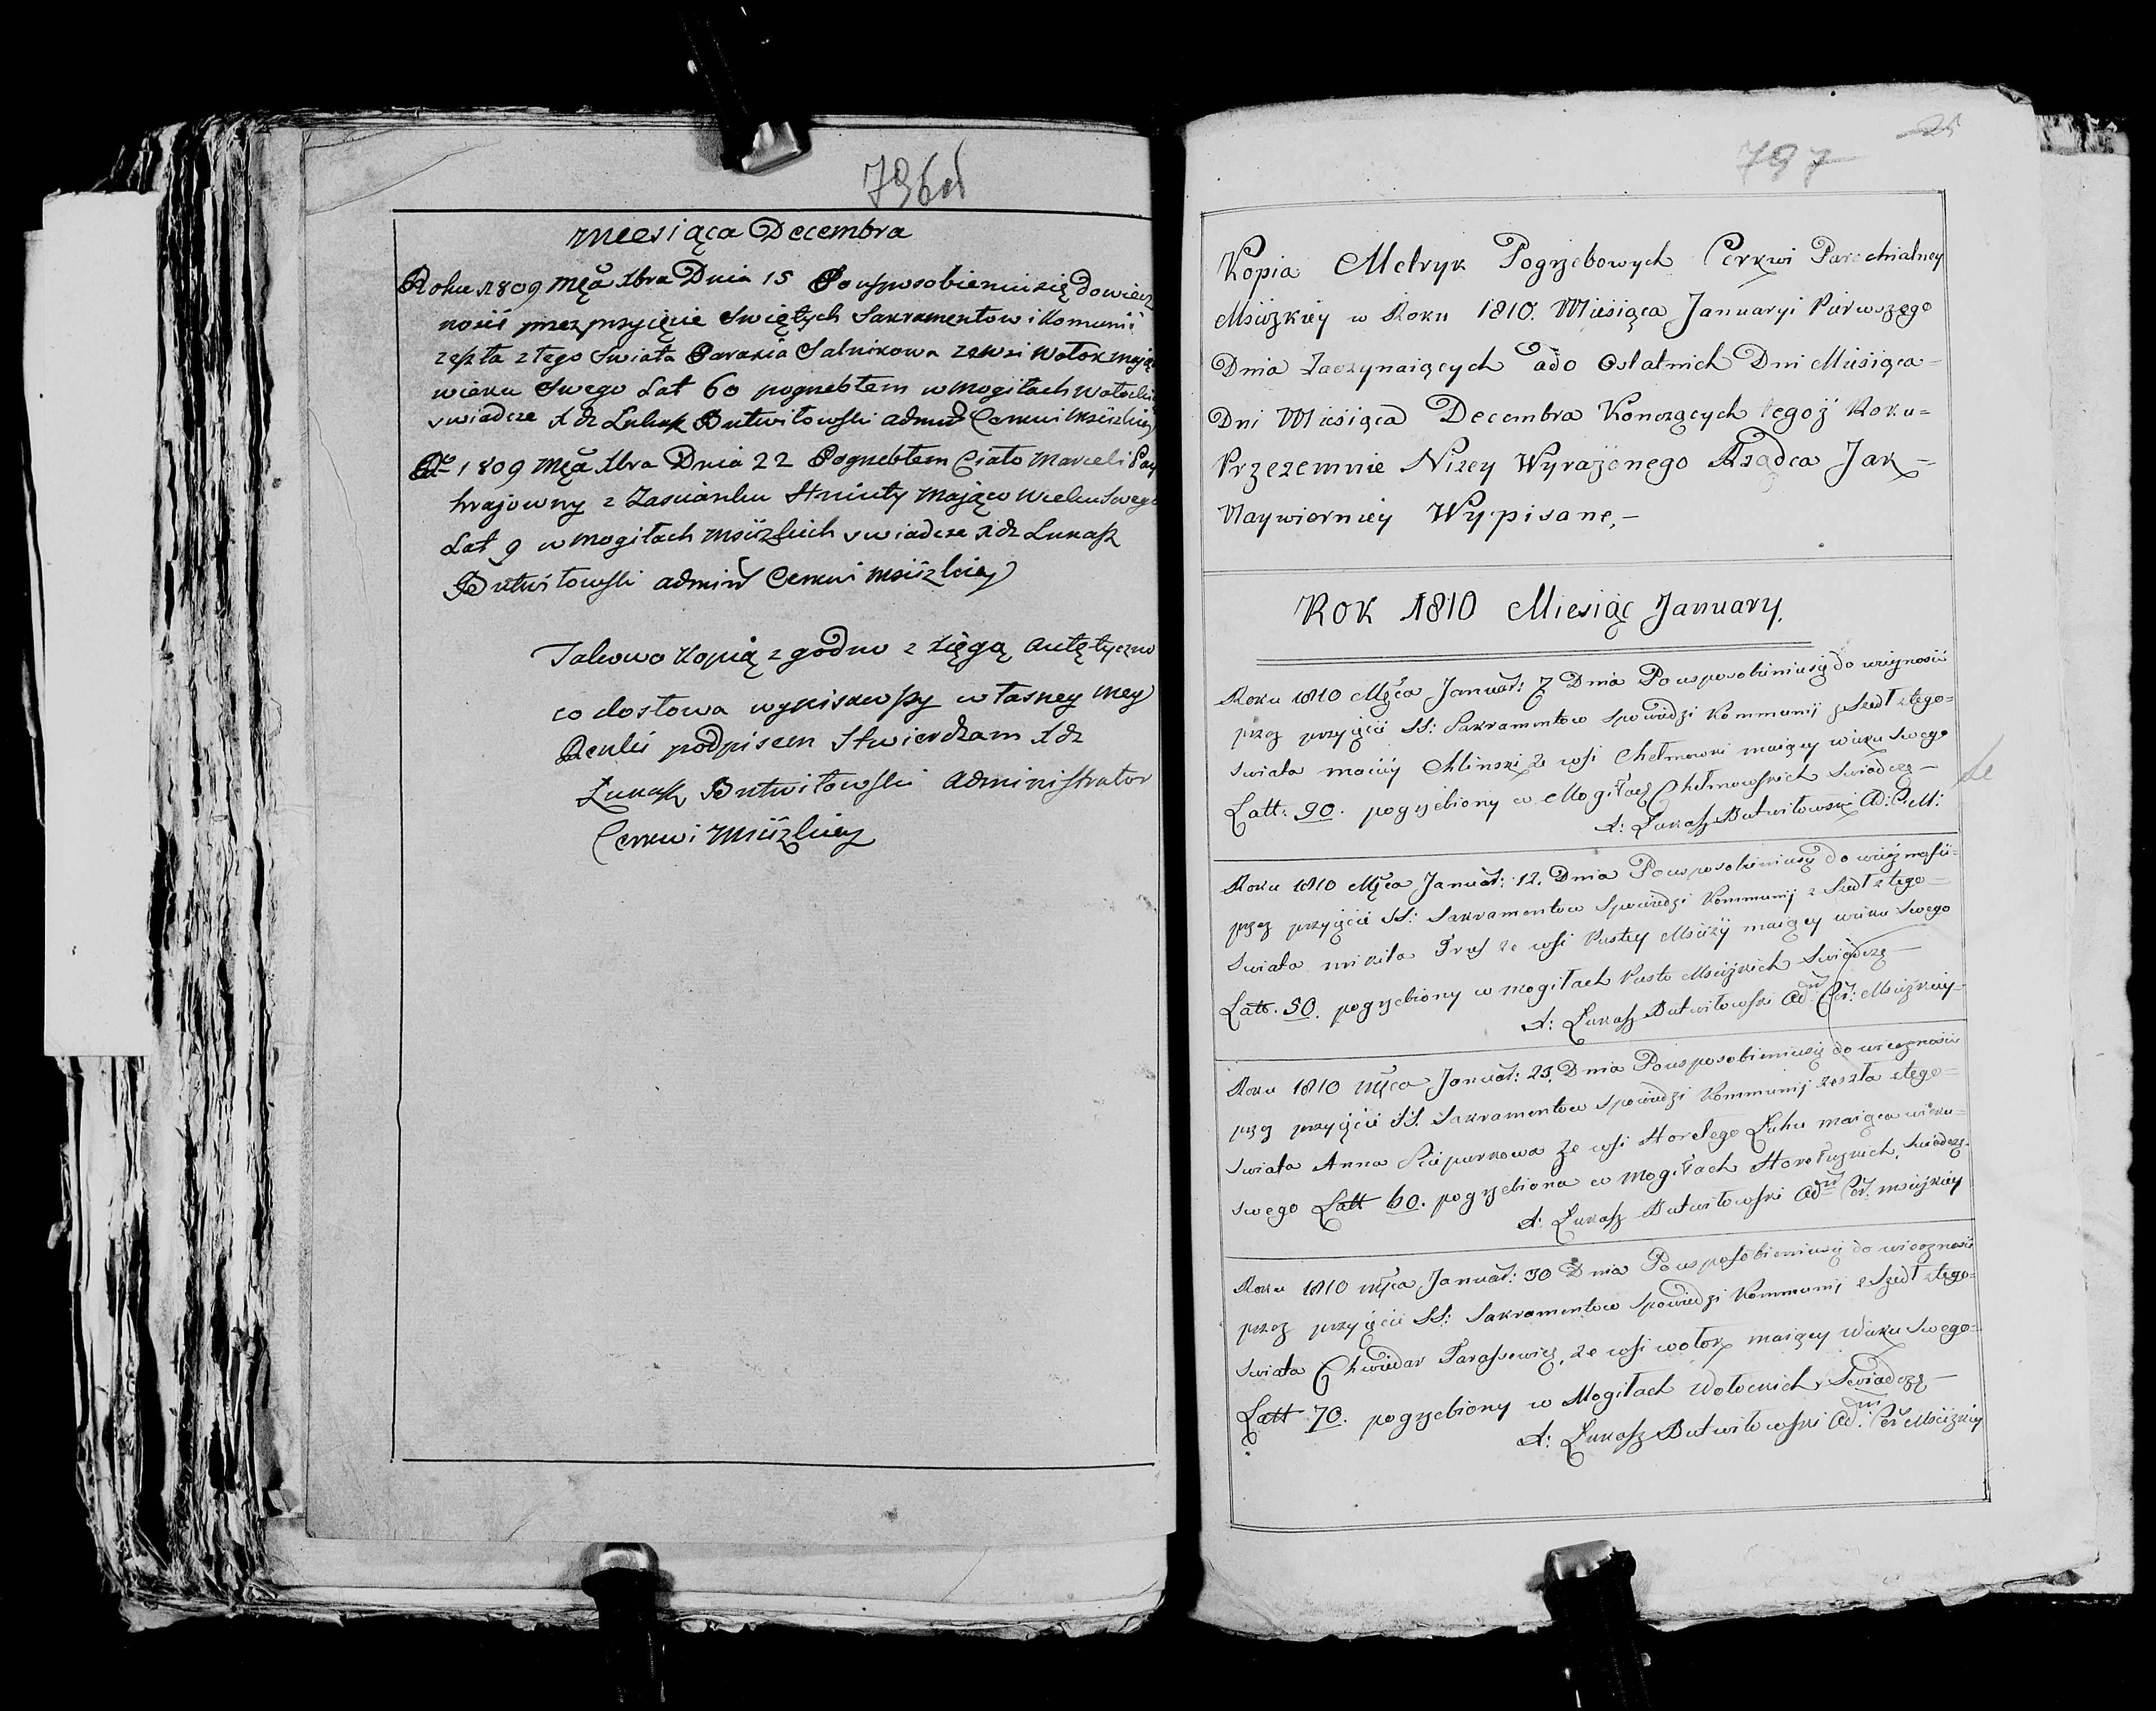 796об
miesiąca Decembra
Roku 1809 Męca Xbra Dnia 15 Po usposobieniu się do wiecz
nosci przez przyięcie Swiętych Sakramentow i Komunii
zeszła z tego Swiata Paraxia Salnikowa ze wsi Wołok mając
wieku Swego Lat 60 pogrzebłem w mogiłach
swiadcze Xdz Lukasz Butwiłowski admr Cerkwi Msciżkiey
1809 Męca Xbra Dnia 22 Pogrzebłem Ciało Marceli
z Zascianku mając wieku Swego
Lat 9 w mogiłach Msciżkich swiadcze Xdz Łukasz
Butwiłowski admin Cerkwi Msciżkiey
Takowo Kopią zgodno z xięgą autętyczno
co do słowa wypisawszy własney mey
Renki podpisem stwierdzam Xdz
Łukasz Butwiłowski administrator
Cerkwi Msciżkiey
25
797
Kopia Metryk Pogrzebowych Cerkwi Parochialney
Msciżkiey w Roku 1810. Miesiąca Januaryi Pierwszego
Dnia Zaczynaiących ado Ostatnich Dni Miesiąca
Dni Miesiąca Decembra Konczących tegoż Roku=
Przezemnie Niżey Wyrażonego Rządca Jak=
Naywierniey Wypisane,—
Rok 1810 Miesiąc January.
Roku 1810 Męca Januar: 7 Dnia Po usposobieniusię do wiecznosci
przez przyięcie SS: Sakramentow Spowiedzi Kommunij zszedł ztego=
Swiata maciey Mlinski ze wsi Chełmowki maiący wieku Swego
Latt: 90. pogrzebiony w Mogiłach Chełmowskich Swiadczę—
X: Łukasz Butwiłowski Ad: C: M:
Roku 1810 Męca Januar: 12. Dnia Po usposobieniusię do wiecznosci=
przez przyięcie SS: Sakramentow Spowiedzi Kommunij zszedł ztego—
Swiata mikita Trus ze wsi Pustey Msciży maiący wieku Swego
Latt. 50. pogrzebiony w mogiłach Pusto Msciżkich Swiadczę—
X: Łukasz Butwiłowski Adm Cer: Msciżkiey-
Roku 1810 Męca Januar: 23. Dnia Po usposobieniusię do wiecznosci
przez przyięcie SS. Sakramentow Spowiedzi Kommunij zeszła ztego=
Swiata Anna ze wsi Horełego Ługu maiąca wieku=
swego Latt 60. pogrzebiona w Mogiłach Horełuzkich. Swiadczę.
X: Łukasz Butwiłowski Adm Cer. msciżkiey
Roku 1810 Męca Januar: 30 Dnia Po usposobieniusię do wiecznosci
przez przyięcie SS: Sakramentow Spowiedzi Kommunij zszedł ztego=
Swiata Chwiedar Tarassewicz, ze wsi Wołok maiący wieku Swego=
Latt 70. pogrzebiony w Mogiłach Wołockich, Swiadczę—
X: Łukasz Butwiłowski Adm. Cer Msciżkiey